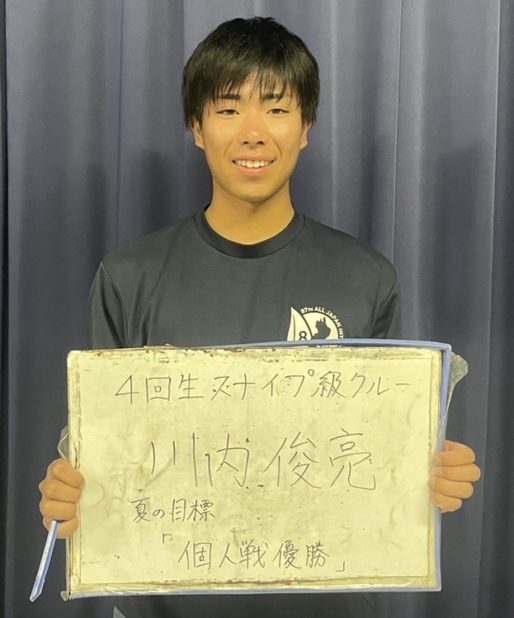 87TH ALL JAPAN
8
4回生スナイプ級クルー
川内 俊亮
夏の目標
「個人戦優勝」